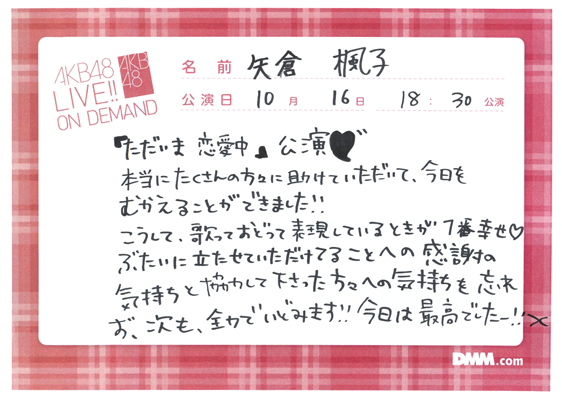 AKB48
LIVE!!
ON DEMAND
AKB
48
名前 矢倉 楓子
公演日 10月 16日 18:30公演
『ただいま 恋愛中』公演♥
本当にたくさんの方々に助けていただいて、今日を
むかえることができました!!
こうして、歌っておどって表現しているときが1番幸せ♡
ぶたいに立たせていただけてることへの感謝の
気持ちと協力して下さった方々への気持ちを忘れ
ず、次も、全力でいどみます!! 今日は最高でしたー!!
DMM.com